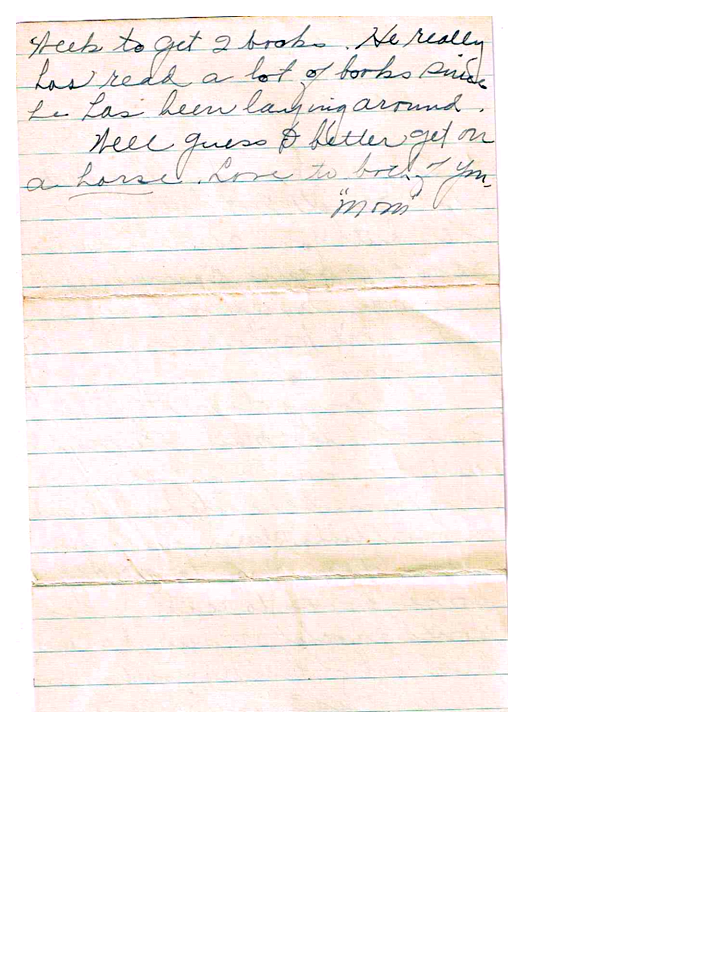 Week to get 2 books. He really
has read a lot of books since
he has been laying around.
Well guess I better get on
a horse. Love to both of you.
"Mom"